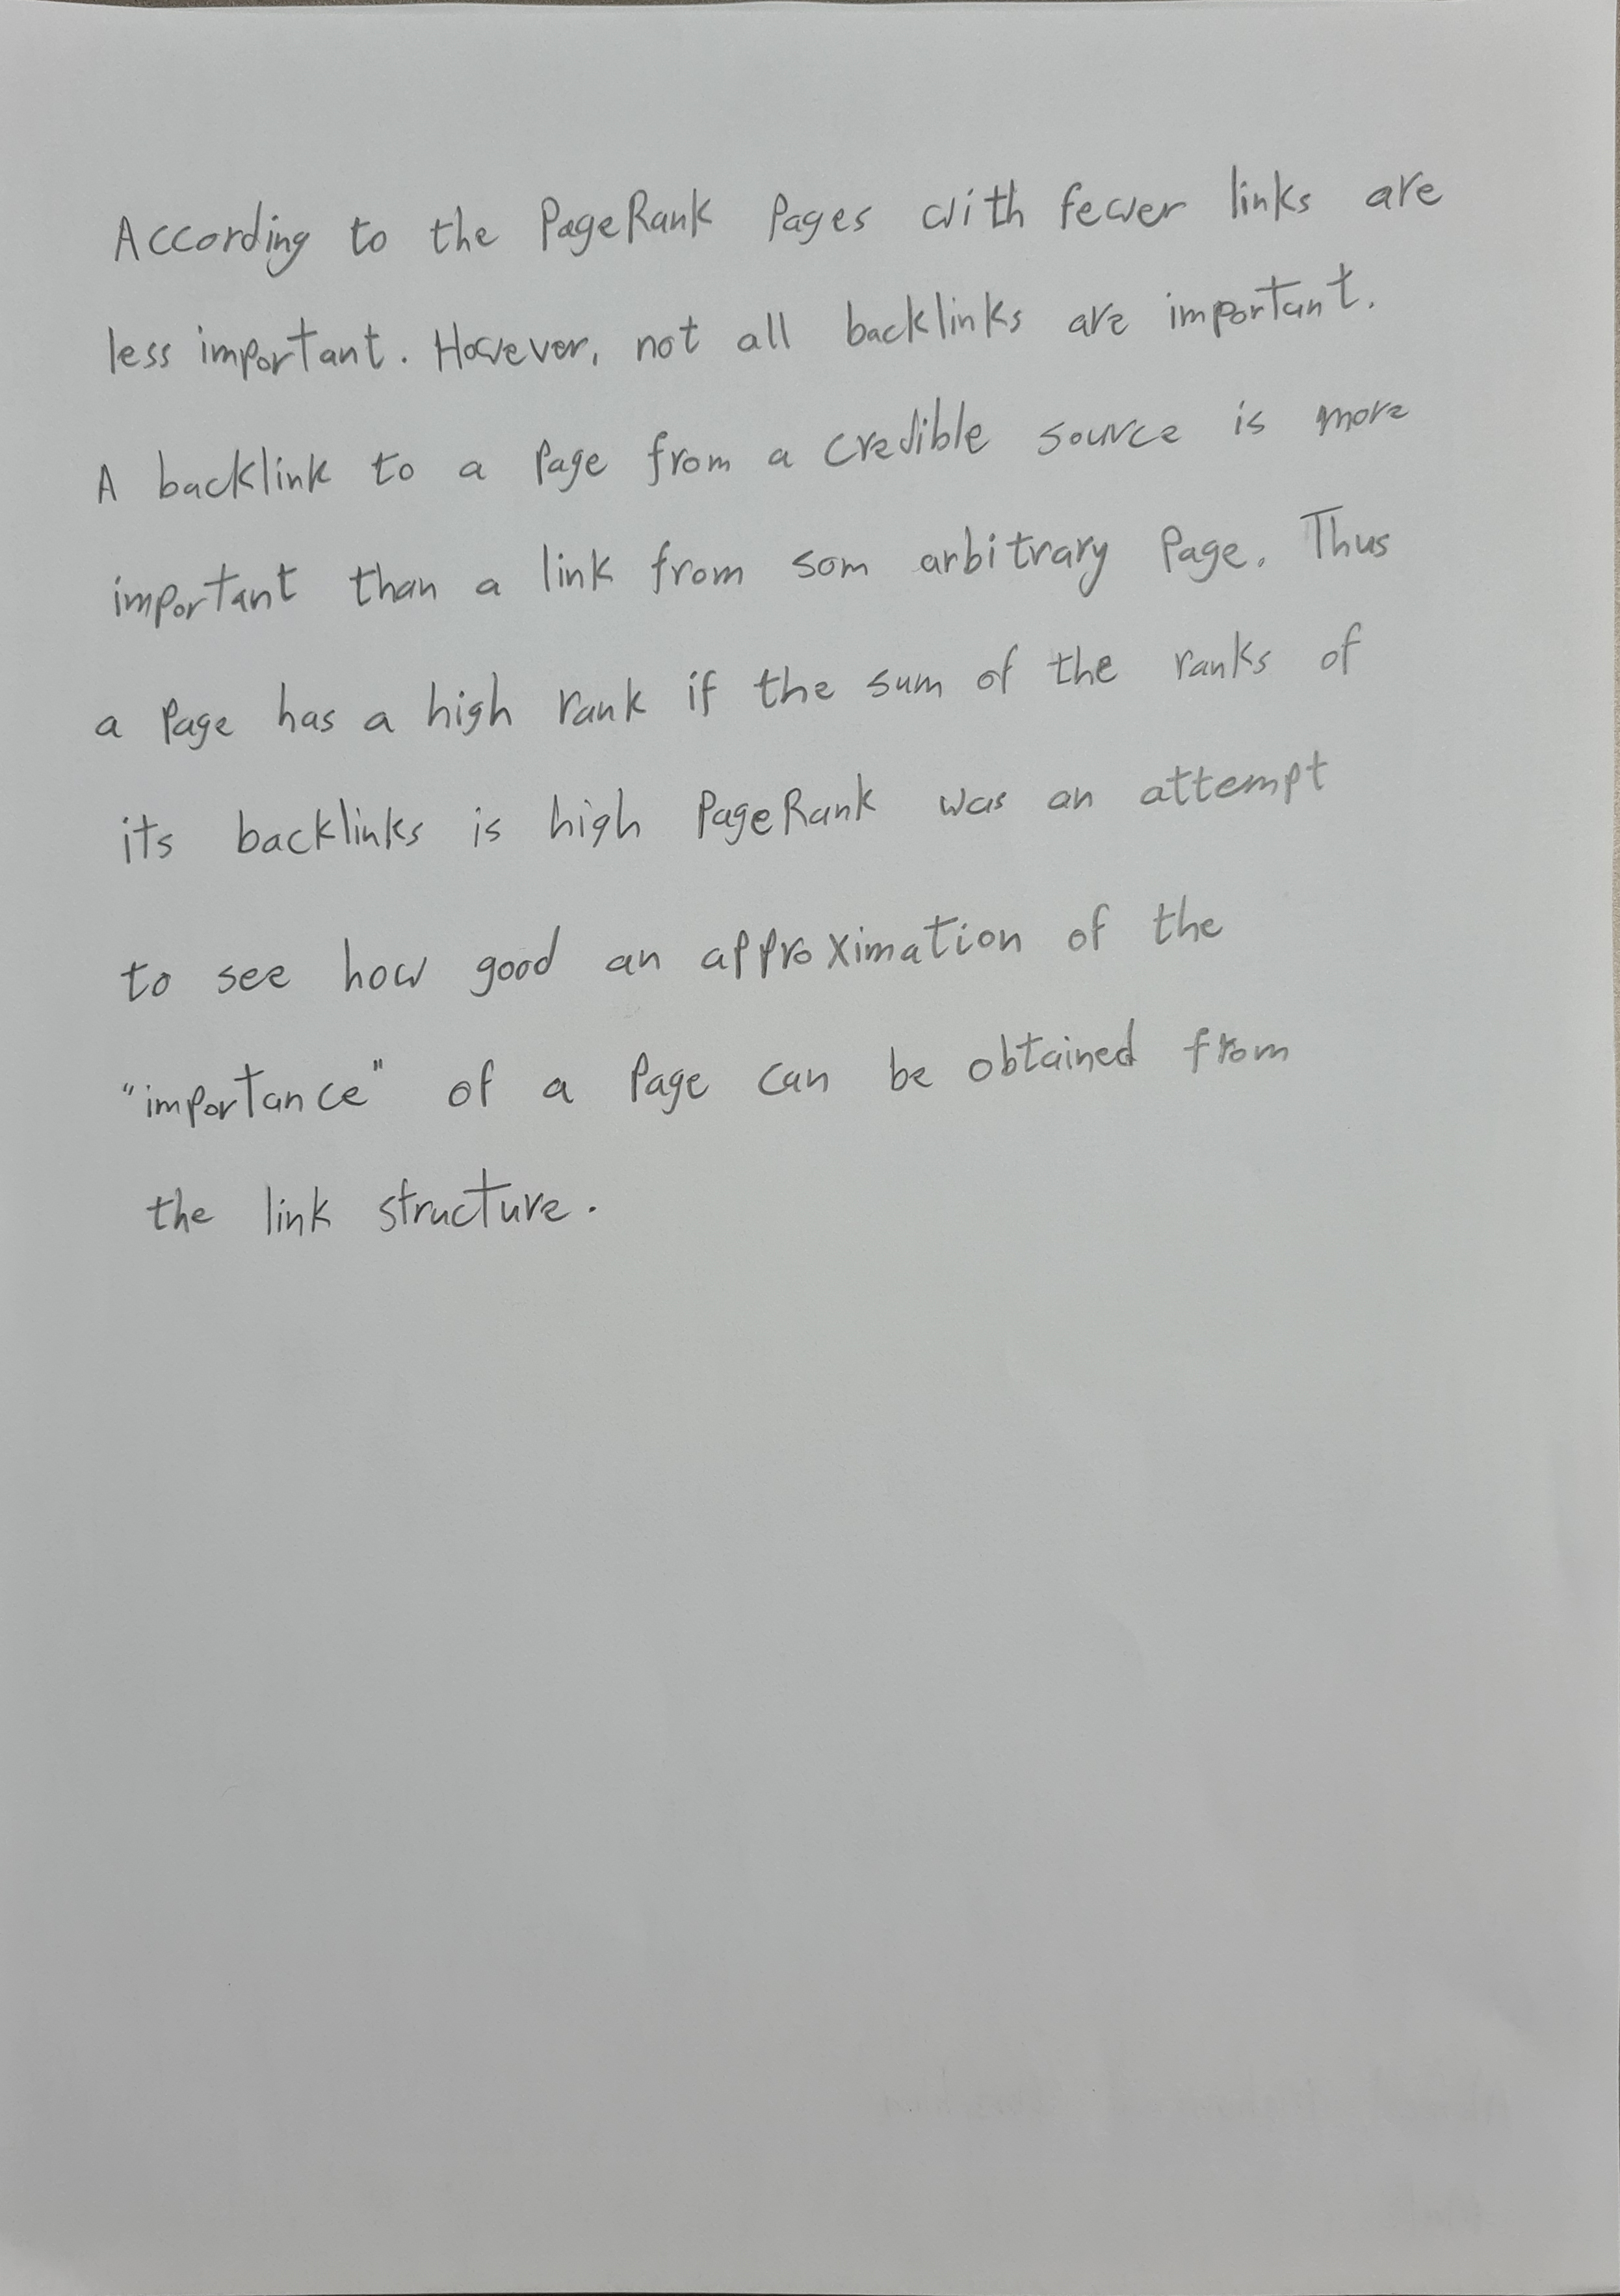 According to the PageRank Pages with fewer links are
less important. However, not all backlinks are important.
A backlink to a Page from a credible source is more
important than a link from som arbitrary Page. Thus
a Page has a high rank if the sum of the ranks of
its backlinks is high PageRank was an attempt
to see how good an approximation of the
"importance" of a Page can be obtained from
the link structure.